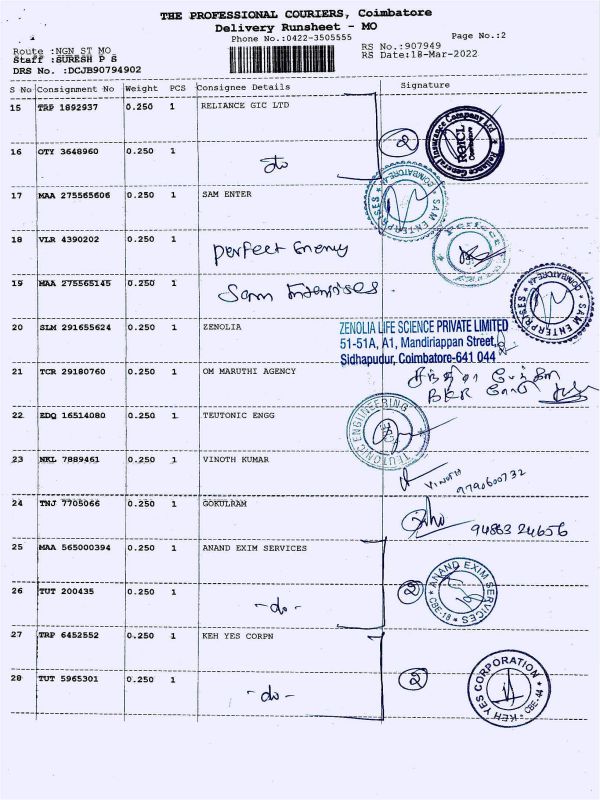 THE PROFESSIONAL COURIERS, Coimbatore
Delivery Runsheet - MO
Phone No.:0422-3505555
Page No.:2
Route :NGN ST MO
RS No.:907949
Staff :SURESH P S
RS Date:18-Mar-2022
DRS No. :DCJB90794902
S No Consignment No Weight PCS Consignee Details Signature
15 TRP 1892937 0.250 1 RELIANCE GIC LTD
2
Reliance General Insurance Company Ltd
RGICL
Coimbatore
16 OTY 3648960 0.250 1
17 MAA 275565606 0.250 1 SAM ENTER
SAM ENTERPRISES COIMBATORE
18 VLR 4390202 0.250 1 Perfect Energy
Perfect
19 MAA 275565145 0.250 1 Sam Enterprises.
SAM ENTERPRISES COIMBATORE
20 SLM 291655624 0.250 1 ZENOLIA
ZENOLIA LIFE SCIENCE PRIVATE LIMITED
51-51A, A1, Mandiriappan Street,
Sidhapudur, Coimbatore-641 044
21 TCR 29180760 0.250 1 OM MARUTHI AGENCY
22 EDQ 16514080 0.250 1 TEUTONIC ENGG
TEUTONIC ENGINEERING
23 NKL 7889461 0.250 1 VINOTH KUMAR
VINOTH
9790600732
24 TNJ 7705066 0.250 1 GOKULRAM
94863 24656
25 MAA 565000394 0.250 1 ANAND EXIM SERVICES
26 TUT 200435 0.250 1 -do-
2
ANAND EXIM SERVICES
CBE-18
27 TRP 6452552 0.250 1 KEH YES CORPN
28 TUT 5965301 0.250 1 -do-
2
KEH YES CORPORATION
CBE-44